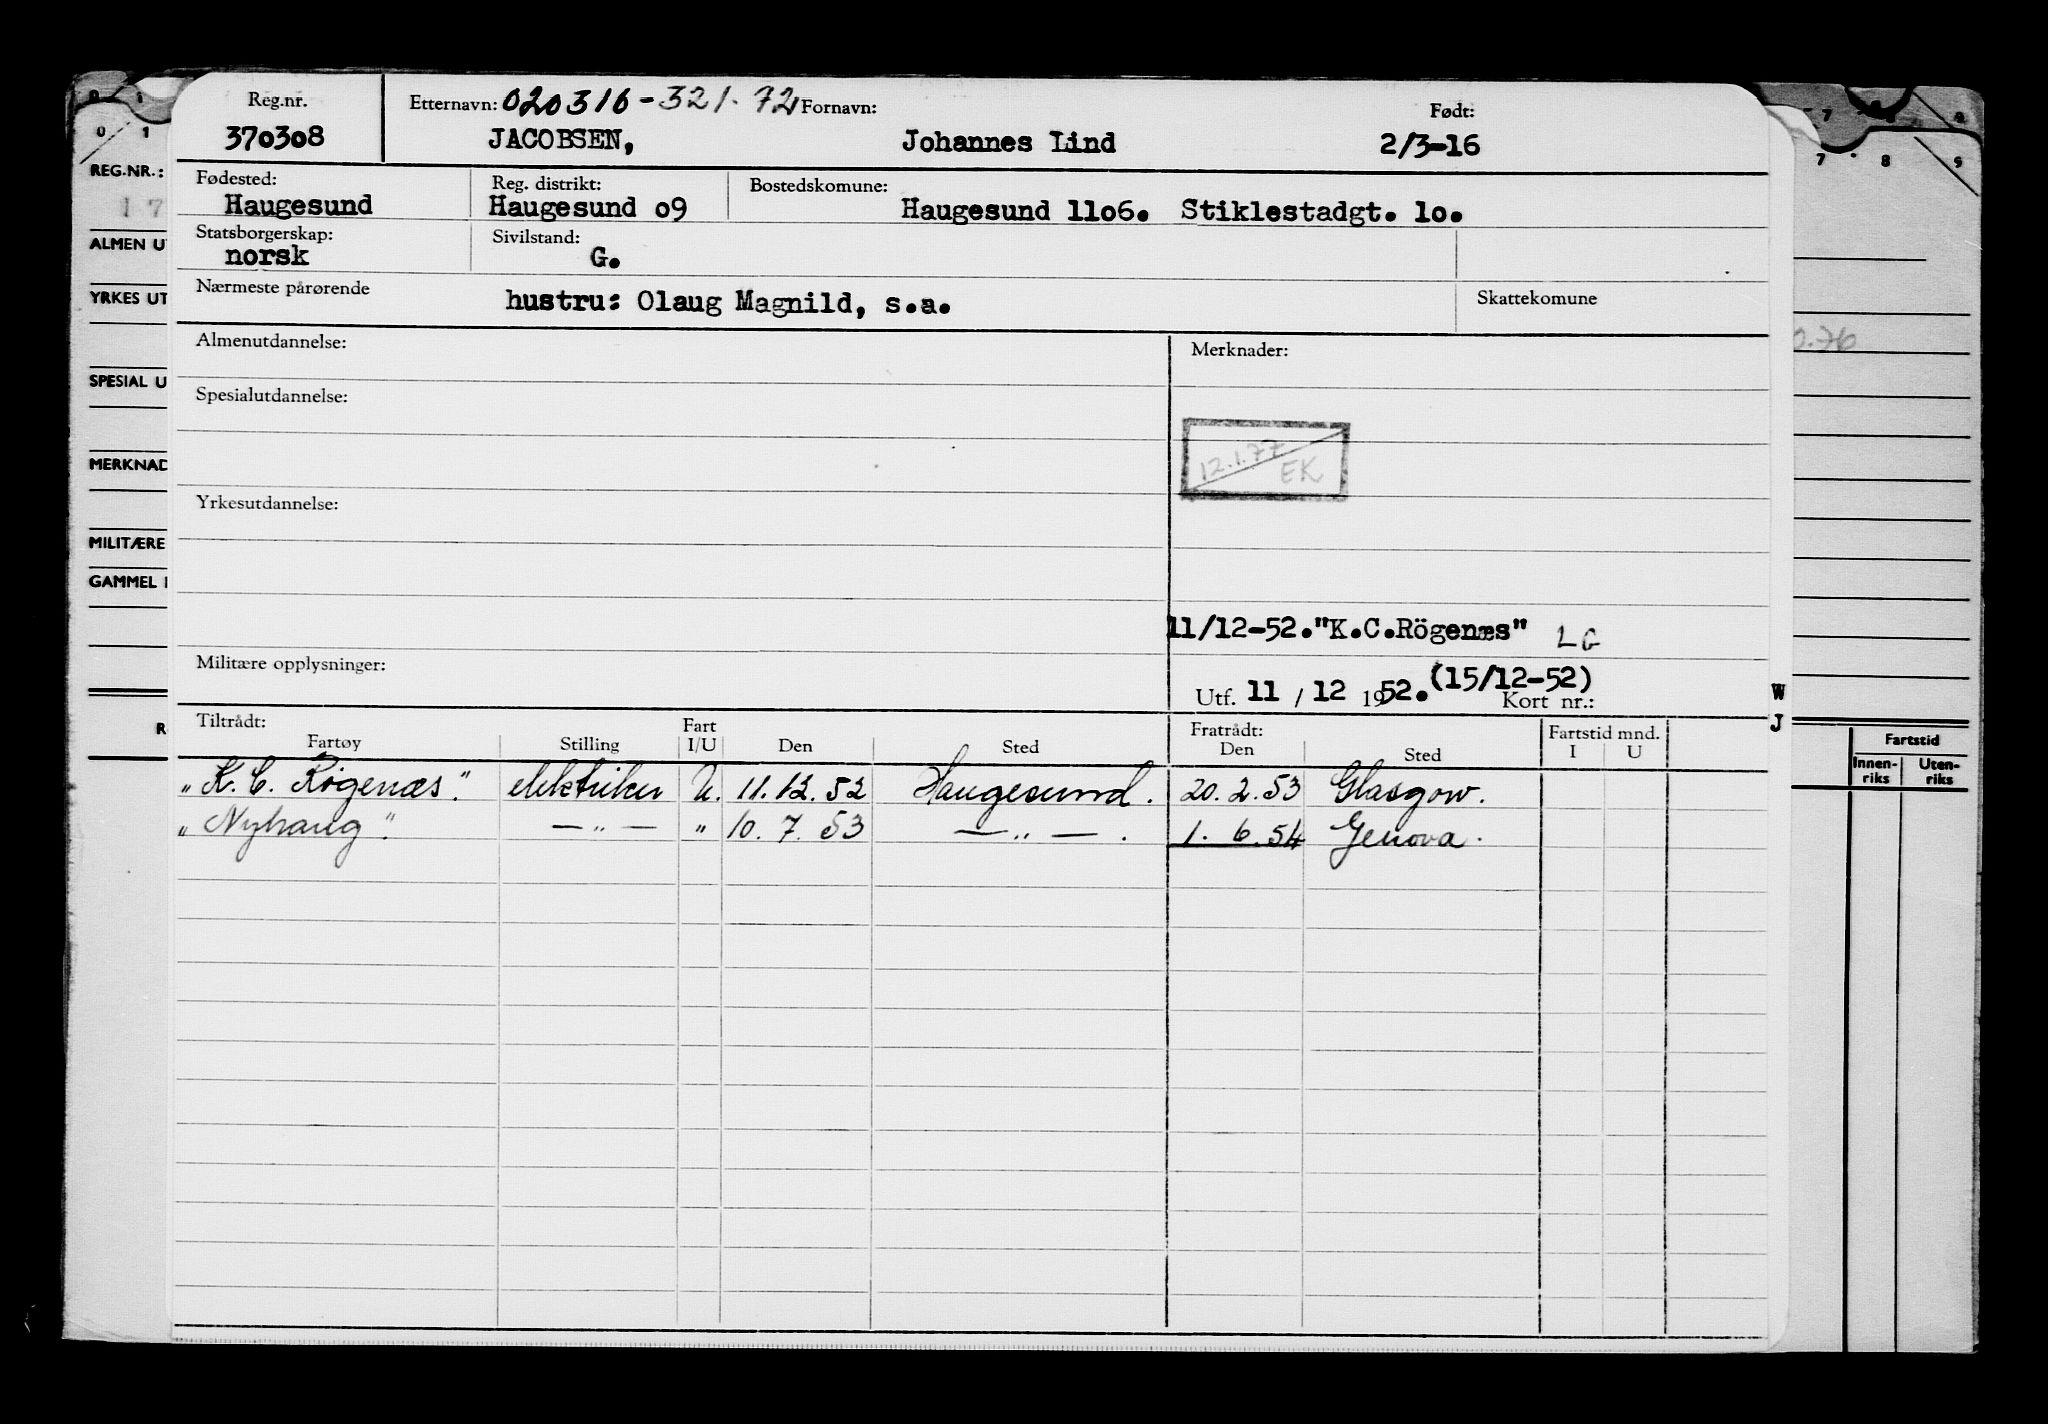 Reg.nr. Etternavn: 020316-321.72 Fornavn: Født:
370308 JACOBSEN, Johannes Lind 2/3-16
Fødested: Reg. distrikt: Bostedskomune:
Haugesund Haugesund 09 Haugesund 1106. Stiklestadgt. 10.
Statsborgerskap: Sivilstand:
norsk G.
Nærmeste pårørende hustru: Olaug Magnild, s.a. Skattekomune
Almenutdannelse: Merknader:
Spesialutdannelse:
12.1.77 EK
Yrkesutdannelse:
11/12-52."K.C.Rögenæs" LG
Militære opplysninger:
Utf. 11 / 12 1952. (15/12-52) Kort nr.:
Tiltrådt: Fart Fratrådt: Fartstid mnd.
Fartøy Stilling I/U Den Sted Den Sted I U
"K. C. Rögenæs". elektriker U. 11.12.52 Haugesund. 20.2.53 Glasgow.
"Nyhaug". — " — " 10. 7. 53 — " — . 1. 6. 54 Genova.
0 1
0 1
REG.NR.:
1 7
ALMEN U
YRKES UT
SPESIAL U
MERKNAD
MILITÆRE
GAMMEL
R
7 8 9
7 8 9
0.76
W
J
Fartstid
Innen-riks Uten-riks